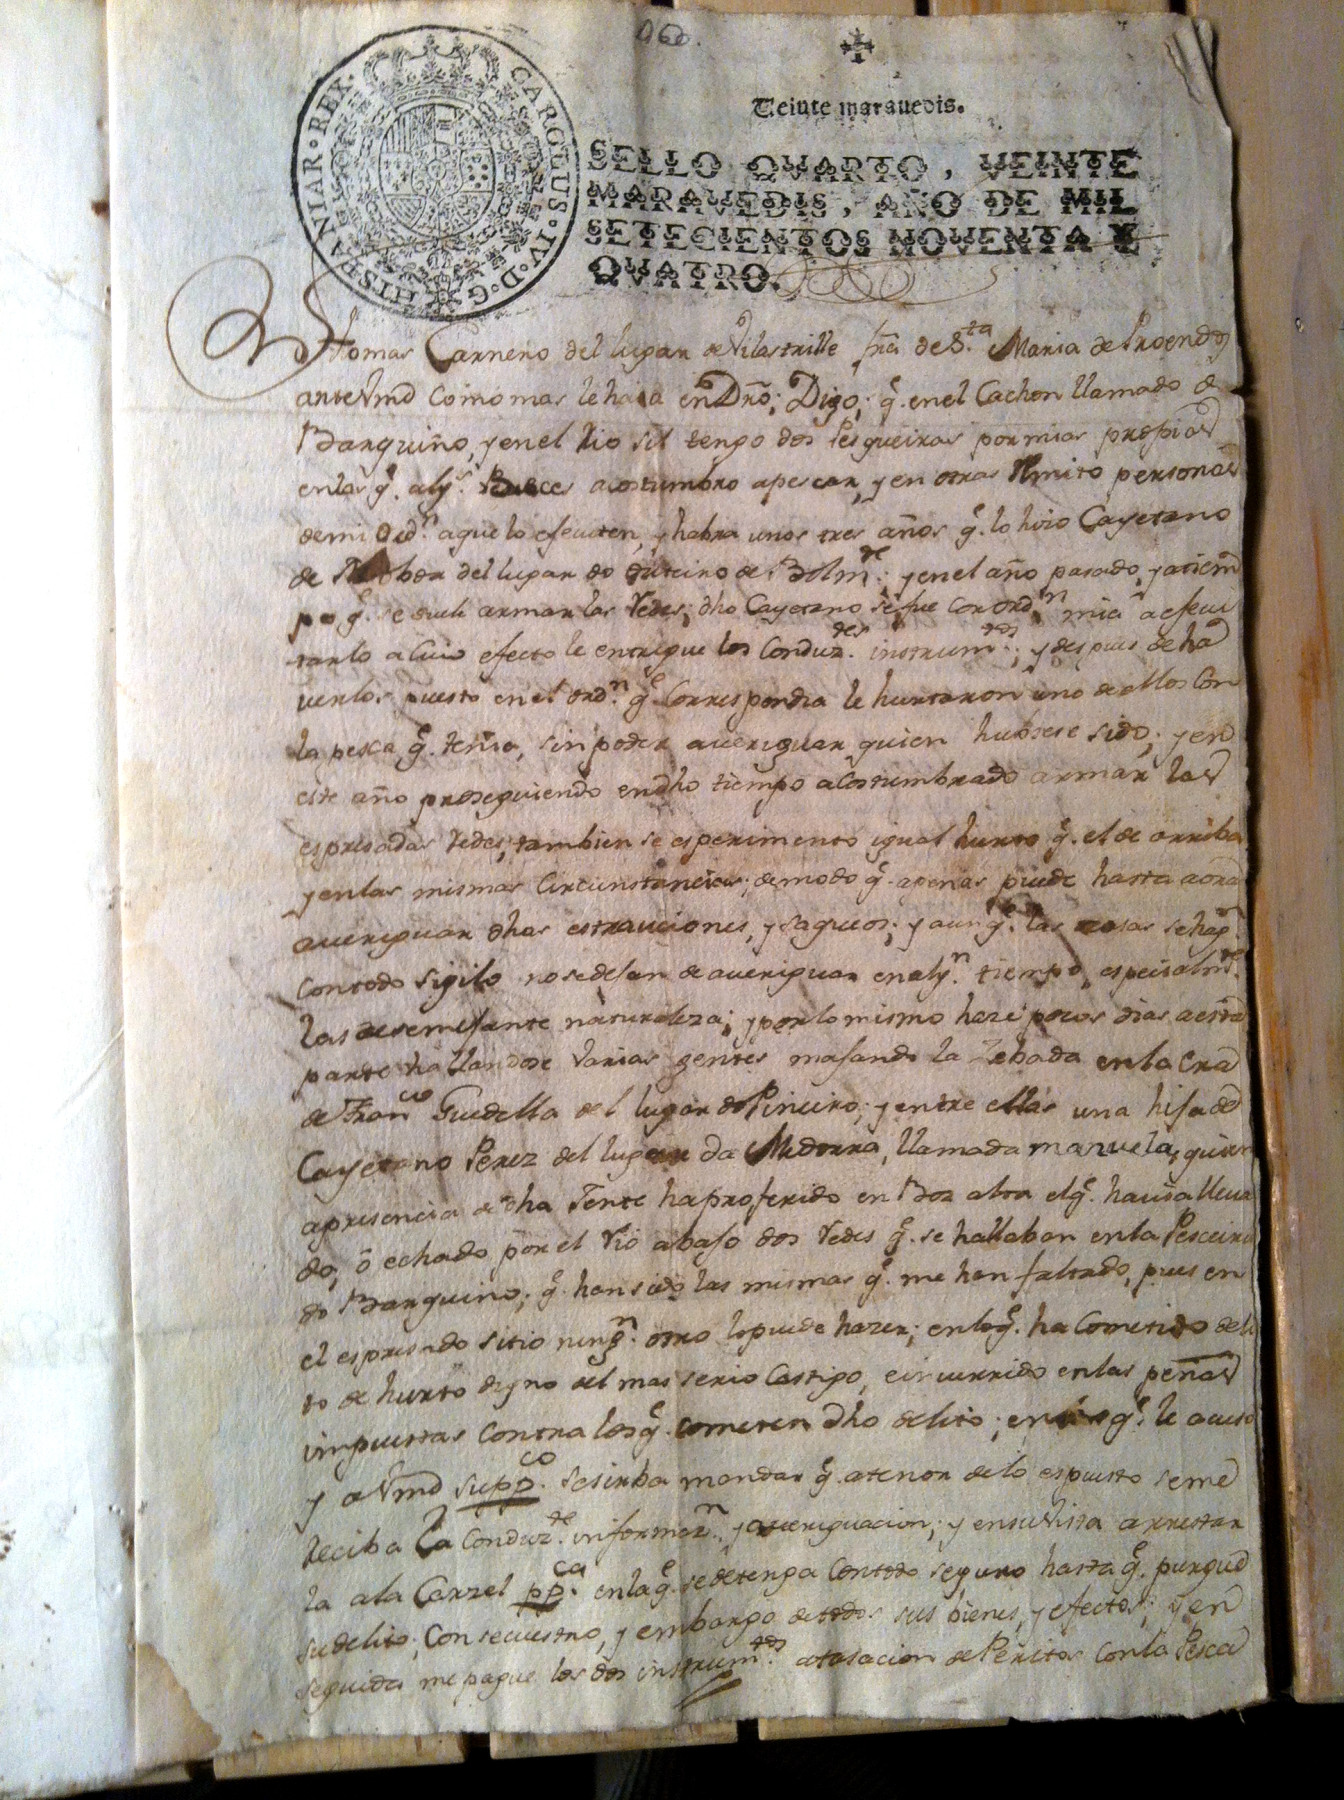 960.
Veinte marauedis.
SELLO QVARTO, VEINTE
MARAVEDIS, AÑO DE MIL
SETECIENTOS NOVENTA Y
QVATRO.
CAROLUS·IV·D·G·HISPANIAR·REX·
Thomas Carnero del lugar de Vilastrille frã de S.ta Maria de Proendos
ante Vmd como mas le haia en Dro; Digo; q.e en el Cachon llamado de
Barquiño, y en el Rio Sil tengo dos Pesqueiras por mias propias
en las q.e alg.s Bueces acostumbro a pescar, y en otras Rmito personas
de mi ord.n a que lo efecuten, y habra unos tres años q.e lo hizo Cayetano
de del lugar do Outeiro de Bolm.te; y en el año pasado, y a tiem
po q.e se suele armar las Redes; dho Cayetano se fue con ord.n mia a efecu
tarlo a Cuio efecto le entregue los Conduz.tes instrum.tos; y despues de ha
uerlos puesto en el ord.n q.e Correspondia le hurtaron uno de ellos Con
la pesca q.e tenia, sin poder aueriguar quien hubiese sido; y en
este año proseguiendo en dho tiempo acostumbrado armar las
espresadas redes, tambien se esperimento igual hurto q.e el de arriba
y en las mismas Circunstancias; de modo q.e apenas puede hasta aora
aueriguar dhas estrauciones, y saqueos; y aunq.e las cosas se hag.n
con todo sigilo no se dejan de aueriguar en alg.n tiempo, especialm.te
las de semejante naturaleza; y por lo mismo haze pocos dias a esta
parte hallandose Varias gentes majando la Zebada en la era
de Fran.co Guedella del lugar do Pineiro; y entre ellas una hija de
Cayetano Perez del lugar da Medorra, llamada manuela, quien
a presencia de dha Jente ha proferido en Boz alta el q.e hauia lleua
do, ô echado por el Rio abajo dos redes q.e se hallaban en la Pesceira
do Barquino; q.e han sido las mismas q.e me han faltado, pues en
el espresado sitio ning.n otro lo puede hazer; en lo q.e ha Cometido deli
to de hurto digno del mas serio Castigo, e incurrido en las penas
impuestas contra los q.e cometen dho delito; en q.e le acuso
y a Vmd supp.co se sirba mandar q.e a tenor de lo espuesto se me
reciba la Conduz.te informaz.n y aueriguacion; y en su Vista arrestar
la a la Carzel pp.ca en la q.e se detenga Con todo seguro hasta q.e purgue
su delito; Con secuestro, y embargo de todos sus bienes, y efectos; y en
seguida me pague los dos instrum.tos a tasacion de Peritos Con la Pesca